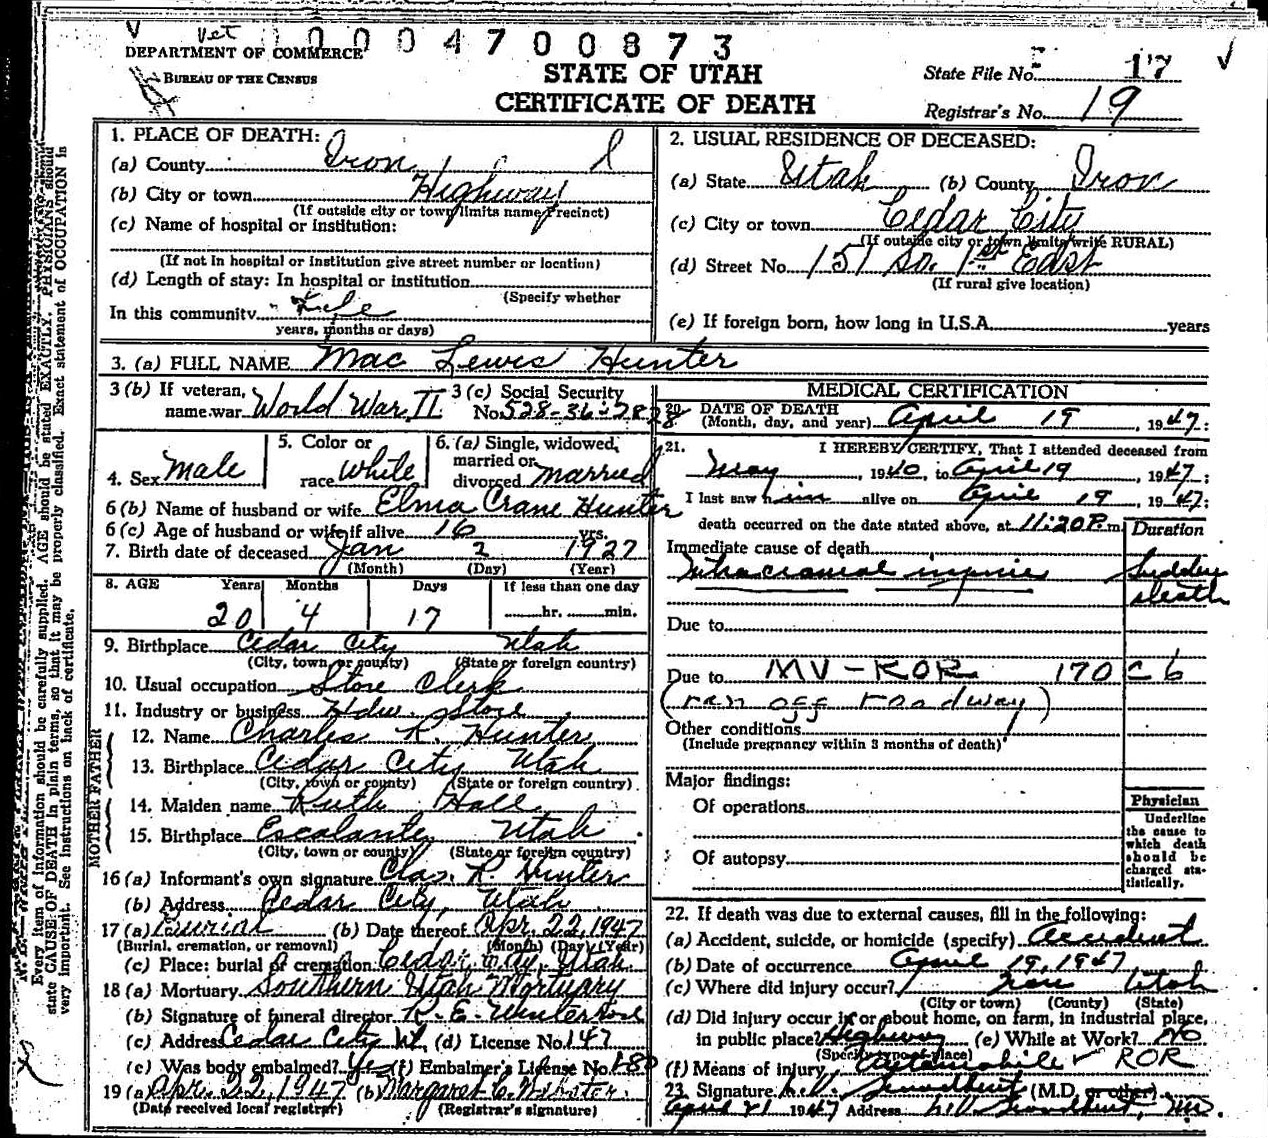 V Vet 0 0 0 0 4 7 0 0 8 7 3 V
DEPARTMENT OF COMMERCE
BUREAU OF THE CENSUS
STATE OF UTAH
CERTIFICATE OF DEATH
State File No. 17
Registrar's No. 19
1. PLACE OF DEATH:
(a) County Iron
(b) City or town Highway
(If outside city or town limits name Precinct)
(c) Name of hospital or institution:
(If not in hospital or institution give street number or location)
(d) Length of stay: In hospital or institution
(Specify whether
In this community Life
years, months or days)
2. USUAL RESIDENCE OF DECEASED:
(a) State Utah (b) County Iron
(c) City or town Cedar City
(If outside city or town limits write RURAL)
(d) Street No. 151 So. 1st East
(If rural give location)
(e) If foreign born, how long in U.S.A. years
3. (a) FULL NAME Mac Lewis Hunter
3 (b) If veteran, name war World War II 3 (c) Social Security No. 528-36-7828
4. Sex Male 5. Color or race White 6. (a) Single, widowed, married or divorced married
6 (b) Name of husband or wife Elma Crane Hunter
6 (c) Age of husband or wife if alive 16 yrs.
7. Birth date of deceased Jan 2 1927
(Month) (Day) (Year)
8. AGE Years Months Days If less than one day
20 4 17 hr. min.
9. Birthplace Cedar City Utah
(City, town or county) (State or foreign country)
10. Usual occupation Store Clerk
11. Industry or business Hdw. Store
FATHER
12. Name Charles R. Hunter
13. Birthplace Cedar City Utah
(City, town or county) (State or foreign country)
MOTHER
14. Maiden name Ruth Hall
15. Birthplace Escalante, Utah
(City, town or county) (State or foreign country)
16 (a) Informant's own signature Chas. R. Hunter
(b) Address Cedar City, Utah
17 (a) Burial (b) Date thereof Apr. 22, 1947
(Burial, cremation, or removal) (Month) (Day) (Year)
(c) Place: burial or cremation Cedar City, Utah
18 (a) Mortuary Southern Utah Mortuary
(b) Signature of funeral director R. E.
(c) Address Cedar City Ut. (d) License No. 147
(e) Was body embalmed? Yes (f) Embalmer's License No.
19 (a) Apr. 22, 1947 (b) Margaret C. Webster.
(Date received local registrar) (Registrar's signature)
MEDICAL CERTIFICATION
20. DATE OF DEATH
(Month, day, and year) April 19, 1947:
21. I HEREBY CERTIFY, That I attended deceased from
May, 1940, to April 19 1947;
I last saw him alive on April 19, 1947;
death occurred on the date stated above, at 11:20 P. m.
Duration
Immediate cause of death
Intracranial injuries Sudden death
Due to
Due to MV - ROR 170 C 6
(ran off roadway)
Other conditions
(Include pregnancy within 3 months of death)
Major findings:
Of operations
Of autopsy
Physician
Underline the cause to which death should be charged statistically.
22. If death was due to external causes, fill in the following:
(a) Accident, suicide, or homicide (specify) Accident
(b) Date of occurrence April 19, 1947
(c) Where did injury occur? Iron Utah
(City or town) (County) (State)
(d) Did injury occur in or about home, on farm, in industrial place,
in public place? Highway (e) While at Work? No
(Specify type of place)
(f) Means of injury Automobile ROR
23. Signature (M.D. or other)
April 21 1947 Address
Every item of information should be carefully supplied. AGE should be stated EXACTLY. PHYSICIANS should
state CAUSE OF DEATH in plain terms, so that it may be properly classified. Exact statement of OCCUPATION is
very important. See instructions on back of certificate.